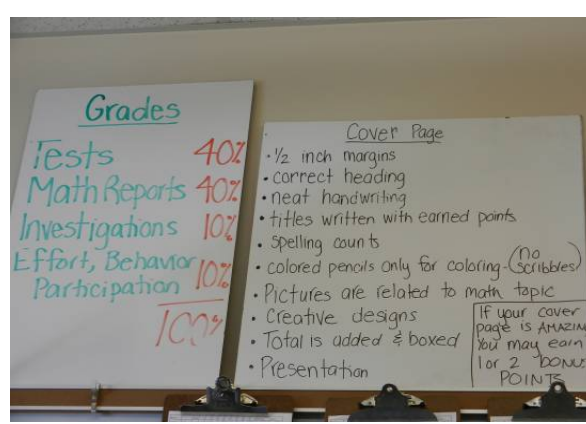 Grades
Tests 40%
Math Reports 40%
Investigations 10%
Effort, Behavior
Participation 10%
100%
Cover Page
• ½ inch margins
• correct heading
• neat handwriting
• titles written with earned points
• spelling counts
• colored pencils only for coloring - (no scribbles)
• Pictures are related to math topic
• Creative designs
• Total is added & boxed
• Presentation
If your cover
page is AMAZING
You may earn
1 or 2 BONUS
POINTS